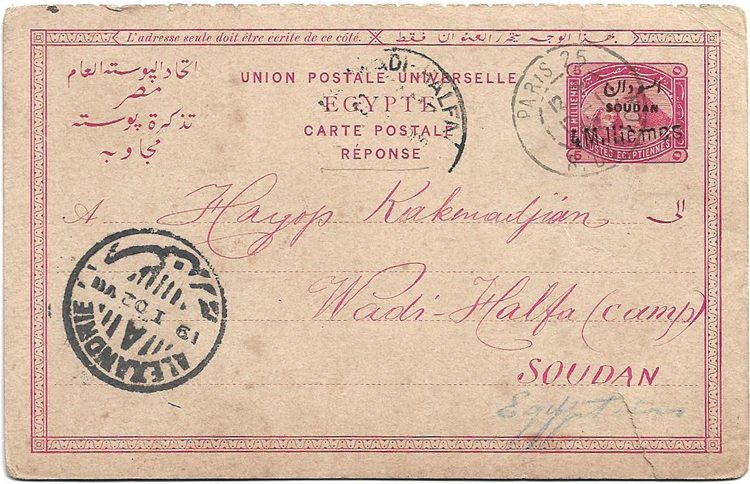 L'adresse seule doit être écrite de ce côté.
بهذا الوجه يتحرر العنوان فقط
اتحاد البوسته العام
مصر
تذكرة بوسته
مجاوبه
UNION POSTALE UNIVERSELLE
EGYPTE
CARTE POSTALE
RÉPONSE
WADI-HALFA
PARIS 25
السودان
SOUDAN
4 Millièmes
POSTES EGYPTIENNES
A Hagop Kakmadjian الى
Wadi-Halfa (camp)
SOUDAN
ALEXANDRIE
19 I 02